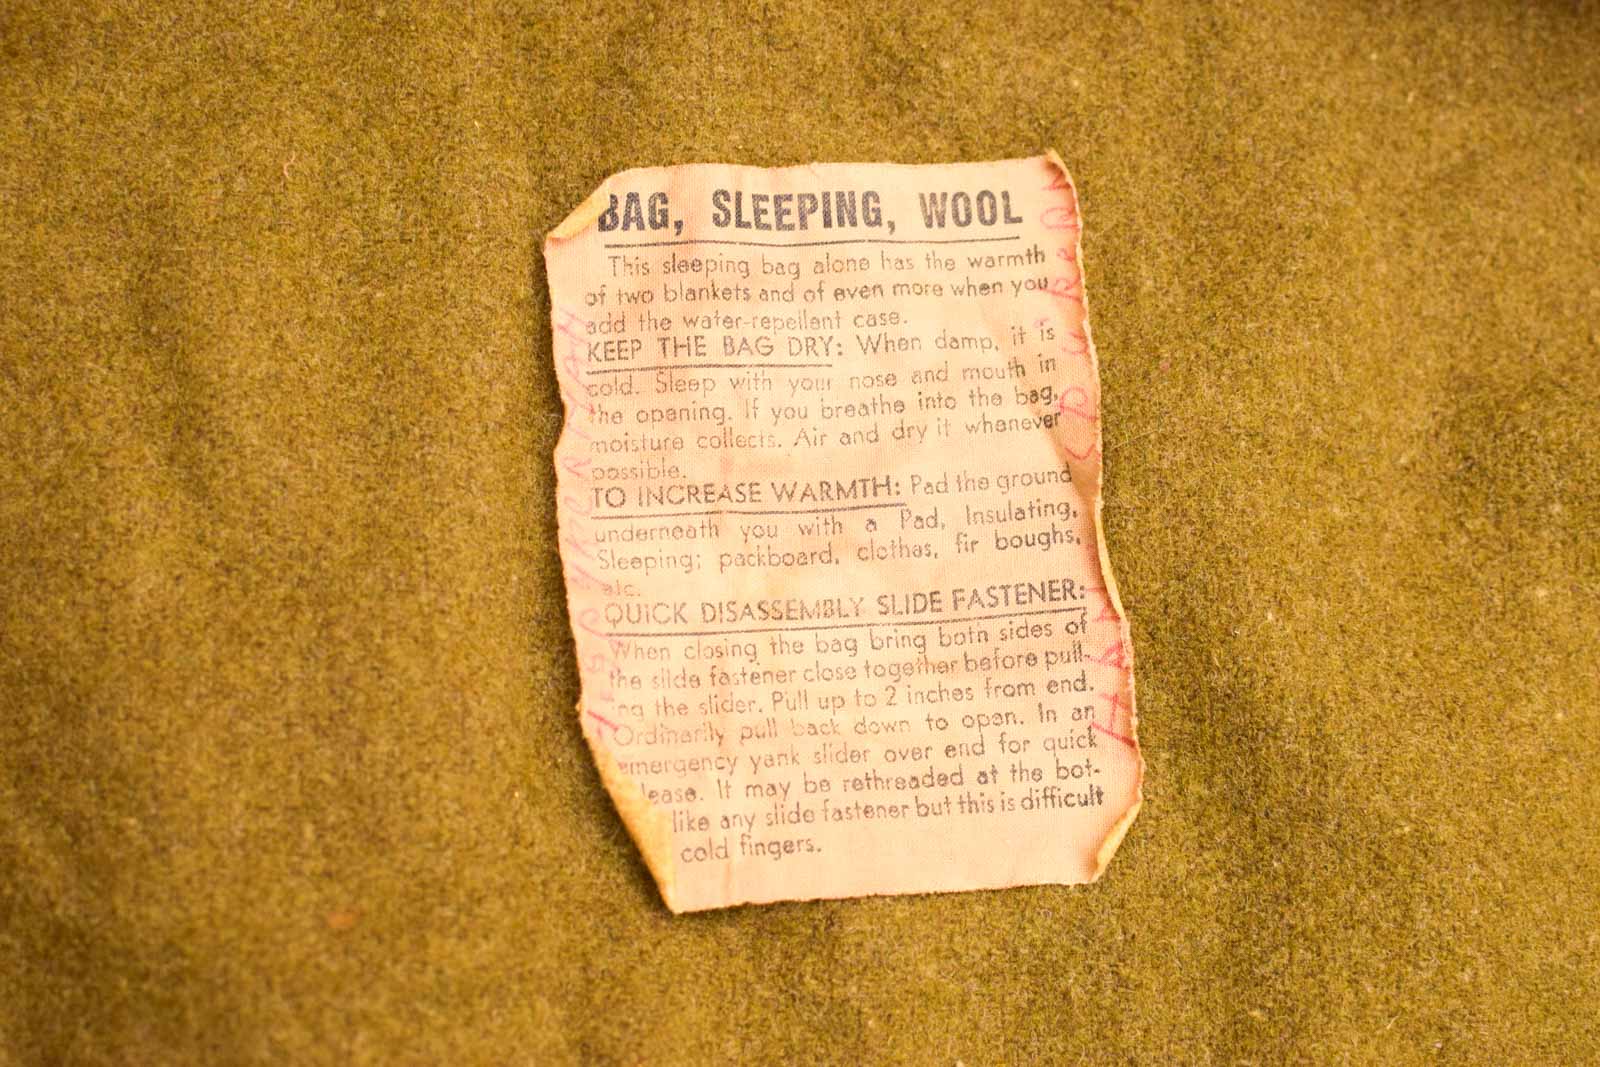 BAG, SLEEPING, WOOL
This sleeping bag alone has the warmth
of two blankets and of even more when you
add the water-repellent case.
KEEP THE BAG DRY: When damp, it is
cold. Sleep with your nose and mouth in
the opening. If you breathe into the bag,
moisture collects. Air and dry it whenever
possible.
TO INCREASE WARMTH: Pad the ground
underneath you with a Pad, Insulating,
Sleeping; packboard, clothes, fir boughs,
etc.
QUICK DISASSEMBLY SLIDE FASTENER:
When closing the bag bring both sides of
the slide fastener close together before pull-
ng the slider. Pull up to 2 inches from end.
Ordinarily pull back down to open. In an
emergency yank slider over end for quick
lease. It may be rethreaded at the bot-
like any slide fastener but this is difficult
cold fingers.